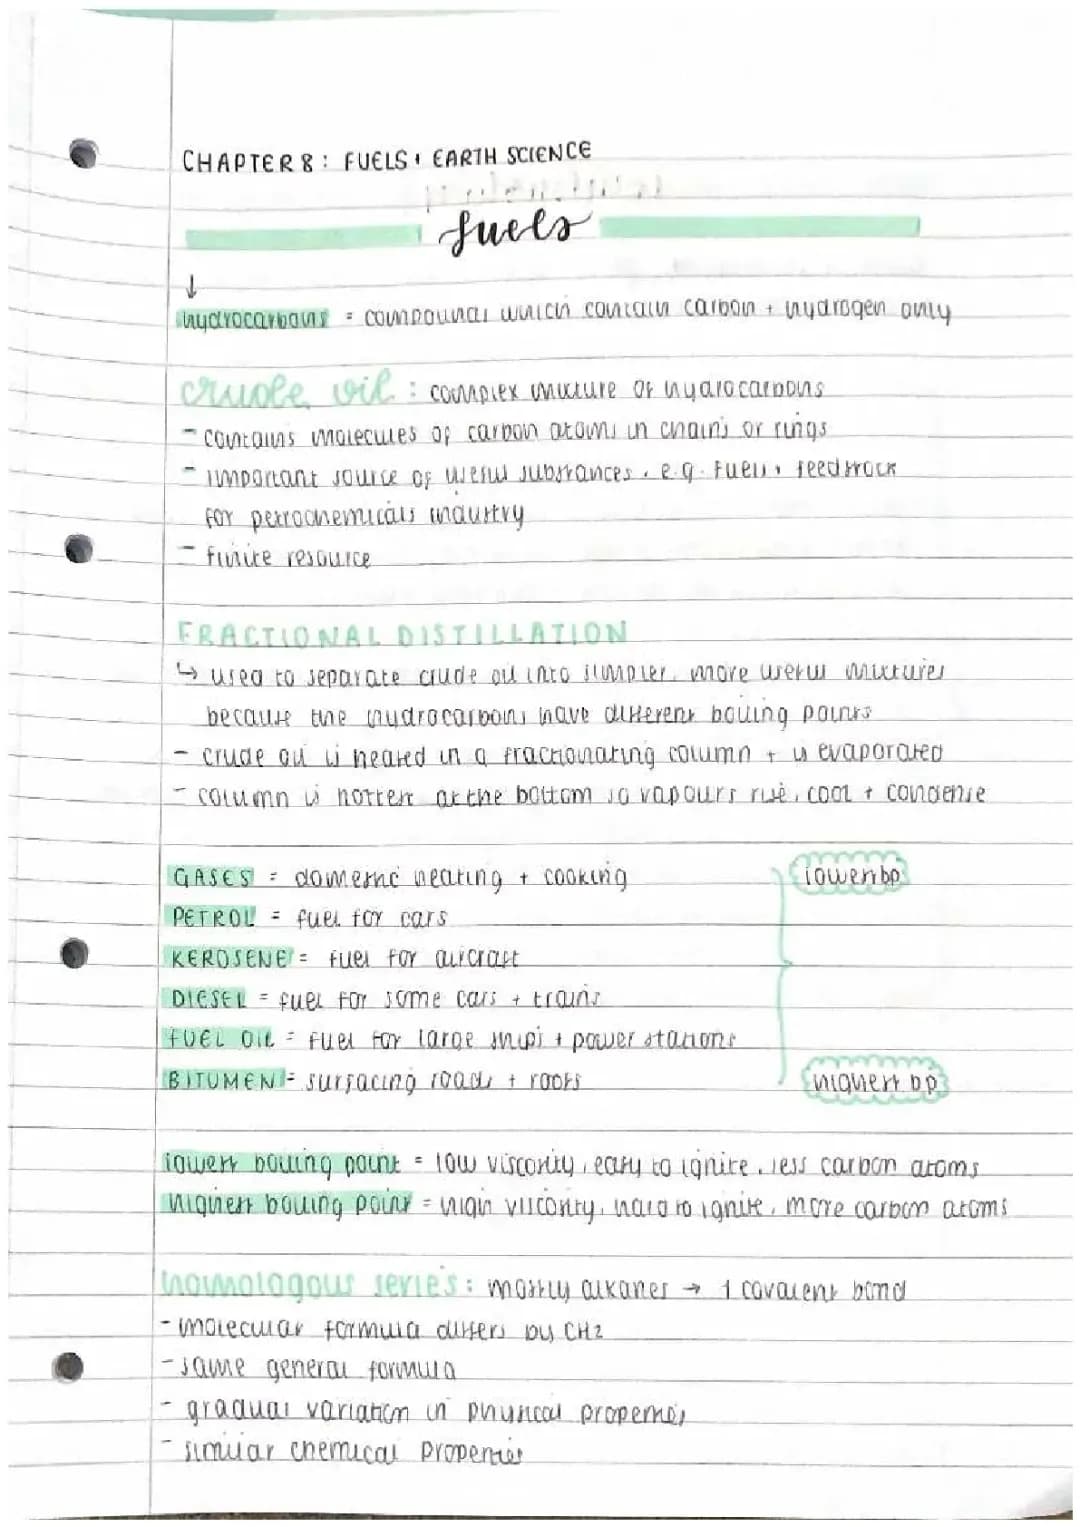 CHAPTER 8: FUELS + EARTH SCIENCE
fuels
↓
hydrocarbons = compounds which contain carbon + hydrogen only
crude oil: complex mixture of hydrocarbons
- contains molecules of carbon atoms in chains or rings
- important source of useful substances, e.g. fuels + feedstock
for petrochemicals industry
- finite resource
FRACTIONAL DISTILLATION
↳ used to separate crude oil into simpler, more useful mixtures
because the hydrocarbons have different boiling points
- crude oil is heated in a fractionating column + is evaporated
- column is hottest at the bottom so vapours rise, cool + condense
GASES = domestic heating + cooking
lowest bp
PETROL = fuel for cars
KEROSENE = fuel for aircraft
DIESEL = fuel for some cars + trains
FUEL OIL = fuel for large ships + power stations
BITUMEN = surfacing roads + roofs
highest bp
lowest boiling point = low viscosity, easy to ignite, less carbon atoms
highest boiling point = high viscosity, hard to ignite, more carbon atoms
homologous series: mostly alkanes → 1 covalent bond
- molecular formula differs by CH2
- same general formula
- gradual variation in physical properties
- similar chemical properties